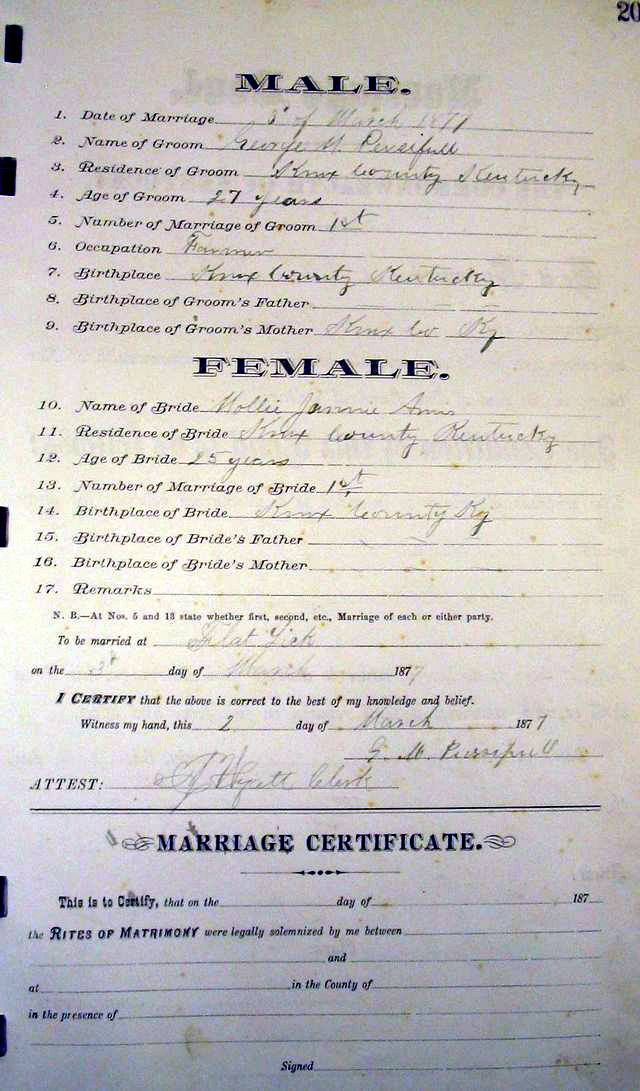 20
MALE.
1. Date of Marriage 3d of March 1877
2. Name of Groom George M. Persifull
3. Residence of Groom Knox County Kentucky
4. Age of Groom 27 years
5. Number of Marriage of Groom 1st
6. Occupation Farmer
7. Birthplace Knox County Kentucky
8. Birthplace of Groom's Father
9. Birthplace of Groom's Mother Knox Co Ky
FEMALE.
10. Name of Bride Mollie Jannie Ann
11. Residence of Bride Knox County Kentucky
12. Age of Bride 25 years
13. Number of Marriage of Bride 1st
14. Birthplace of Bride Knox County Ky
15. Birthplace of Bride's Father
16. Birthplace of Bride's Mother
17. Remarks
N. B.—At Nos. 5 and 13 state whether first, second, etc., Marriage of each or either party.
To be married at Flat Lick
on the 3d day of March 1877
I CERTIFY that the above is correct to the best of my knowledge and belief.
Witness my hand, this 2 day of March 1877
G. M. Persifull
ATTEST: Clerk
MARRIAGE CERTIFICATE.
This is to Certify, that on the day of 187
the RITES OF MATRIMONY were legally solemnized by me between
and
at in the County of
in the presence of
Signed